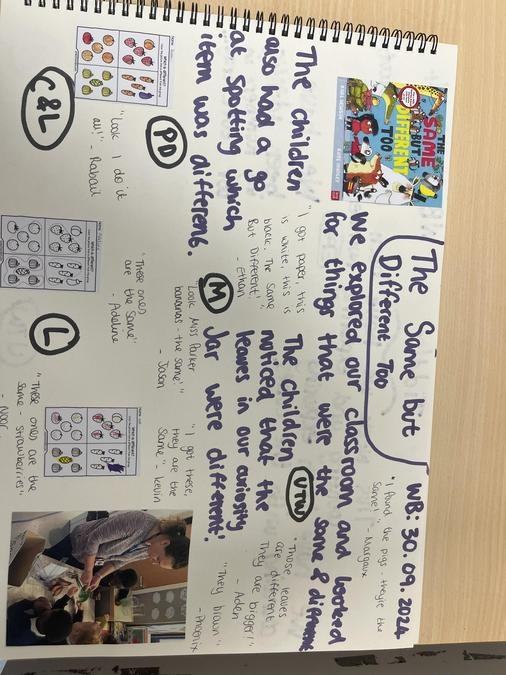 The Same but
Different Too
WB: 30.09.2024
THE
SAME
BUT
DIFFERENT
TOO
We explored our classroom and looked
for things that were the same & different
"I found the pigs - they're the
same!" - Margaux
The children
also had a go
at spotting which
item was different.
"I got paper, this
is white, this is
black. The same
But Different!"
- Ethan
UTW
The children
noticed that the
leaves in our curiosity
Jar were different.
"Those leaves
are different
They are bigger!"
- Aden
"They brown"
- Phoenix
PD
M
"Look Miss Parker
bananas - the same!"
- Jason
"I got these,
they are the
same" - Kevin
C&L
"Look I do it
all!" - Rabail
"These ones
are the same"
- Adeline
L
"These ones are the
same - strawberries"
- Noor